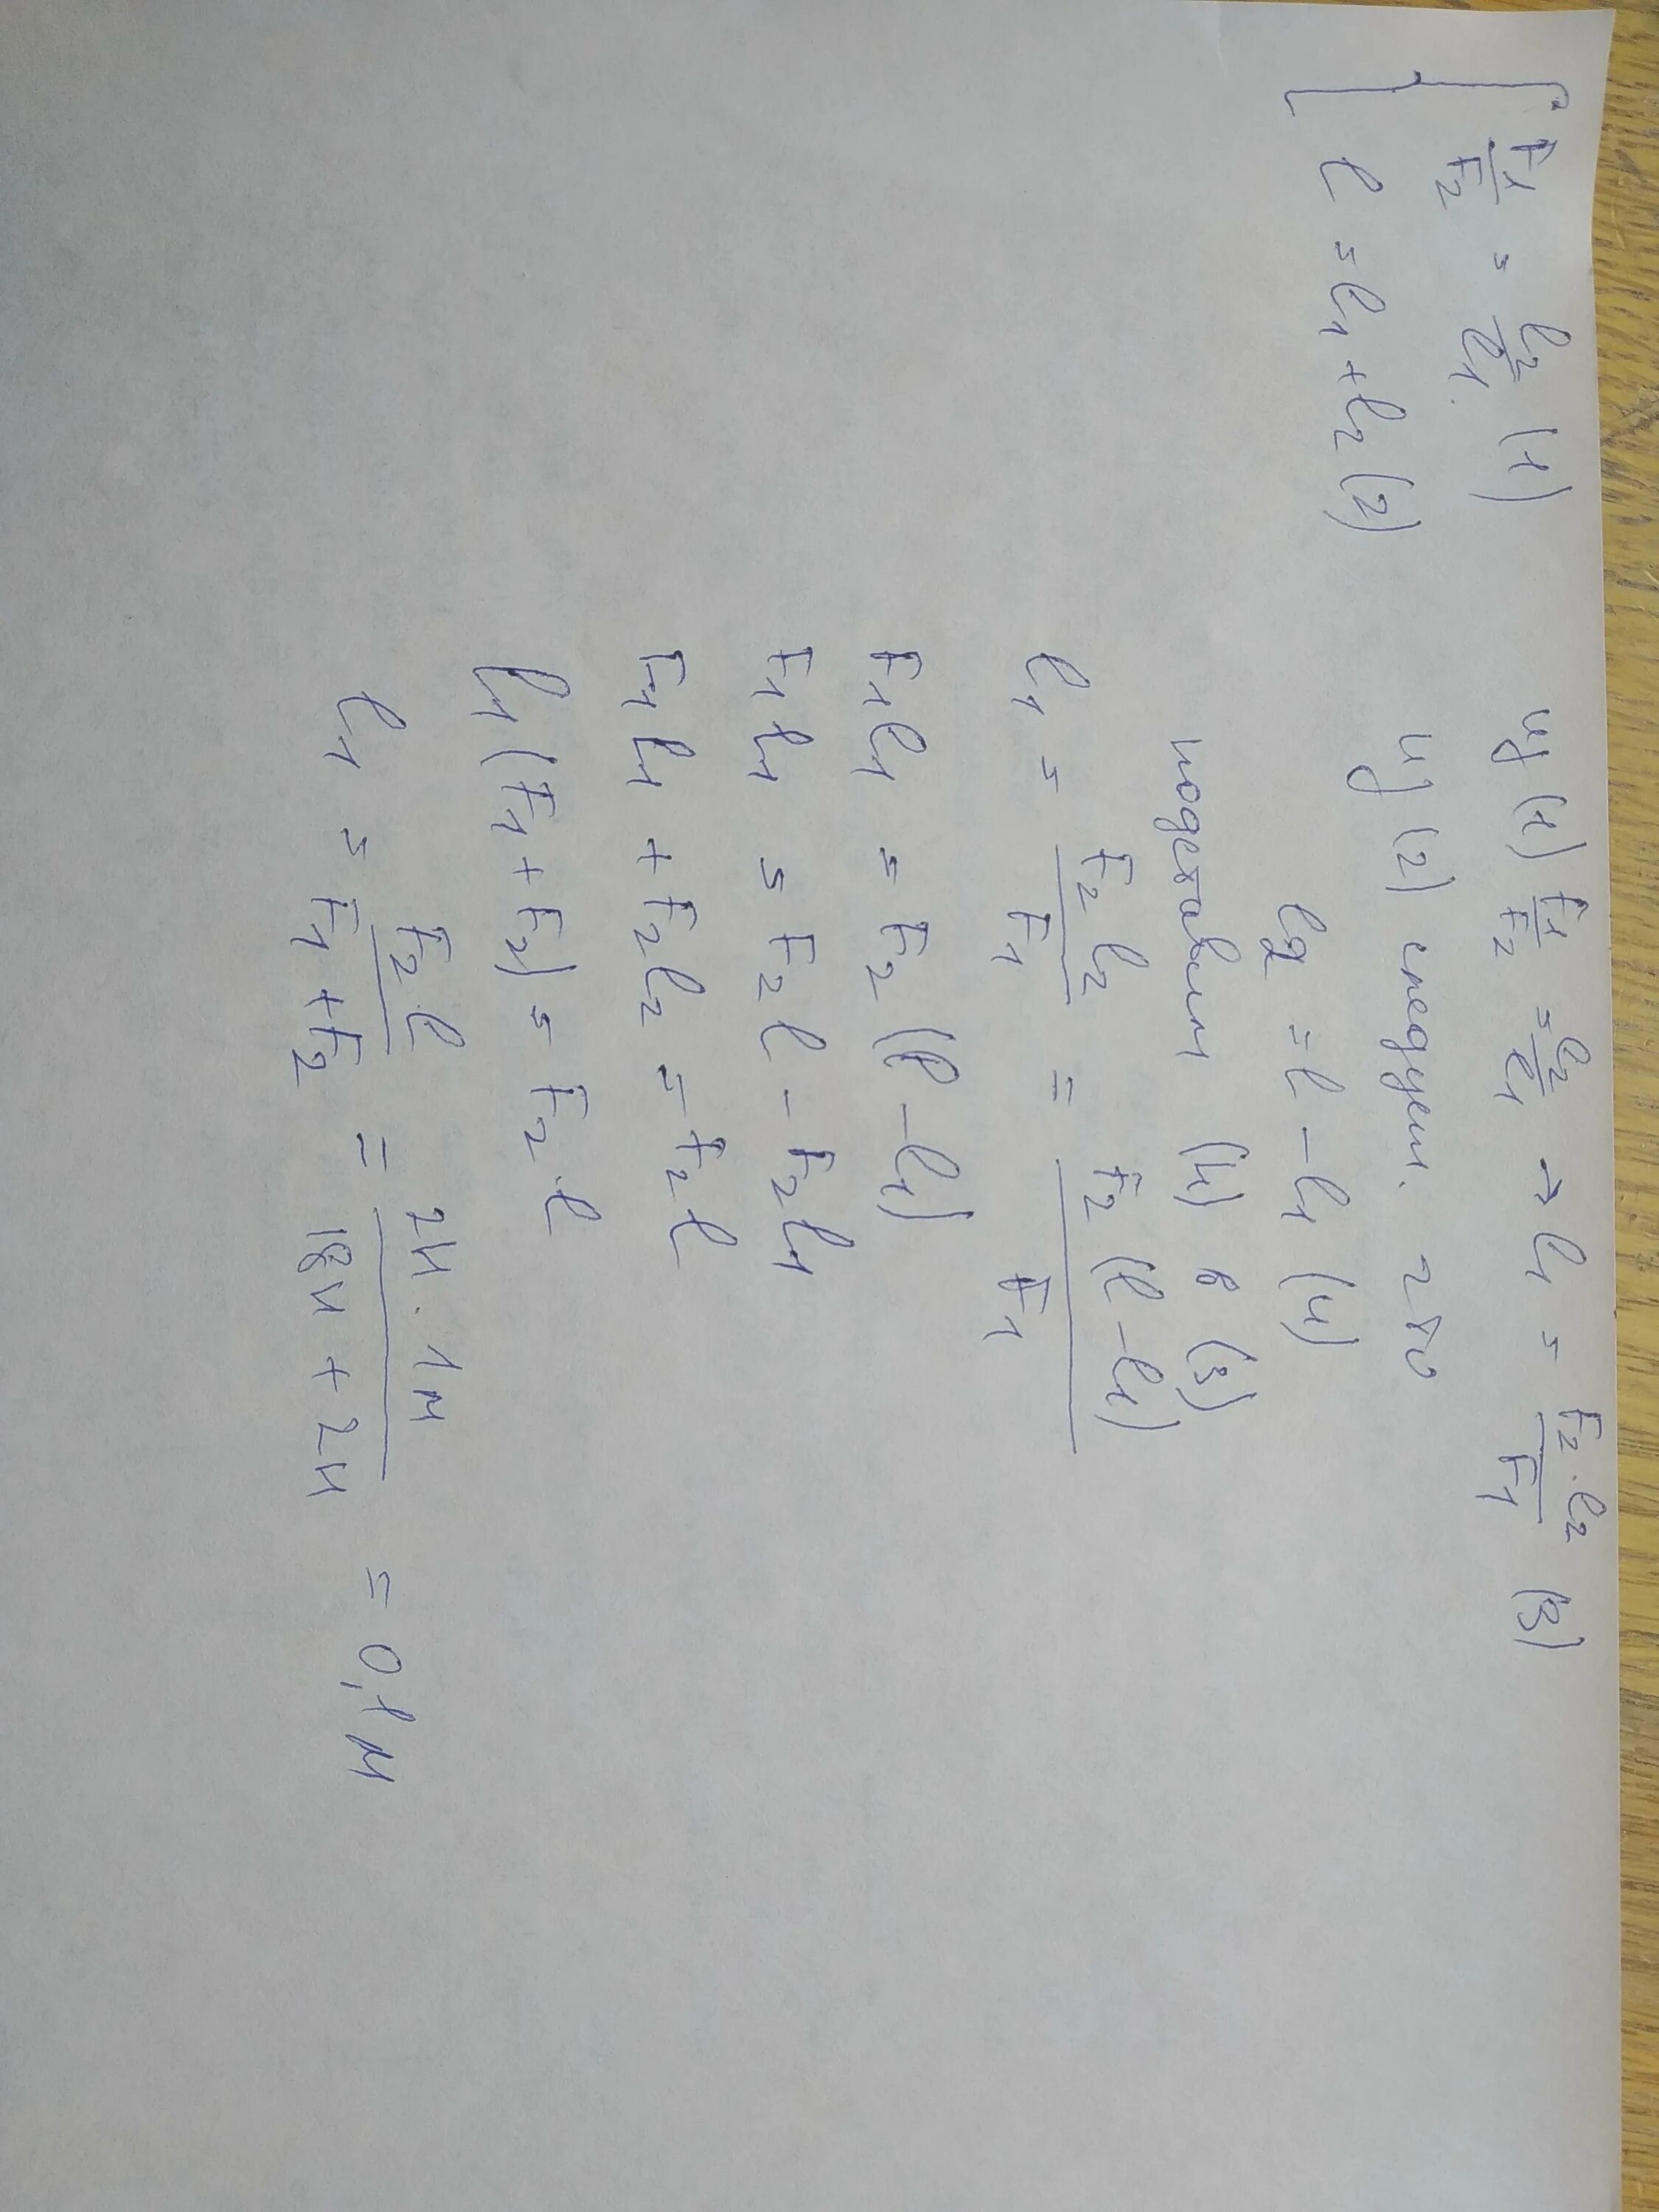 F1/F2 = l2/l1. (1)
l = l1 + l2 (2)
из (1) F1/F2 = l2/l1 → l1 = F2 · l2 / F1 (3)
из (2) следует. что
l2 = l - l1 (4)
подставим (4) в (3)
l1 = F2 l2 / F1 = F2 (l - l1) / F1
F1 l1 = F2 (l - l1)
F1 l1 = F2 l - F2 l1
F1 l1 + F2 l2 = F2 l
l1 (F1 + F2) = F2 · l
l1 = F2 · l / F1 + F2 = 2Н · 1м / 18Н + 2Н = 0,1м